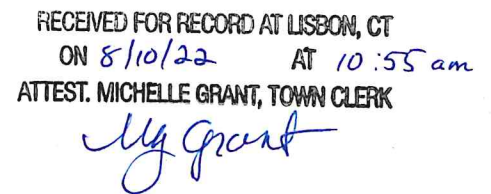 RECEIVED FOR RECORD AT LISBON, CT
ON 8/10/22 AT 10:55 am
ATTEST. MICHELLE GRANT, TOWN CLERK
MGrant